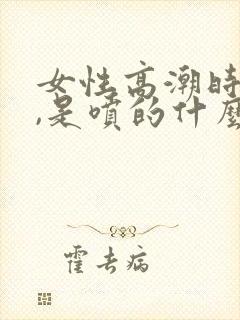 女性高潮時
,是噴的什麼
霍去病